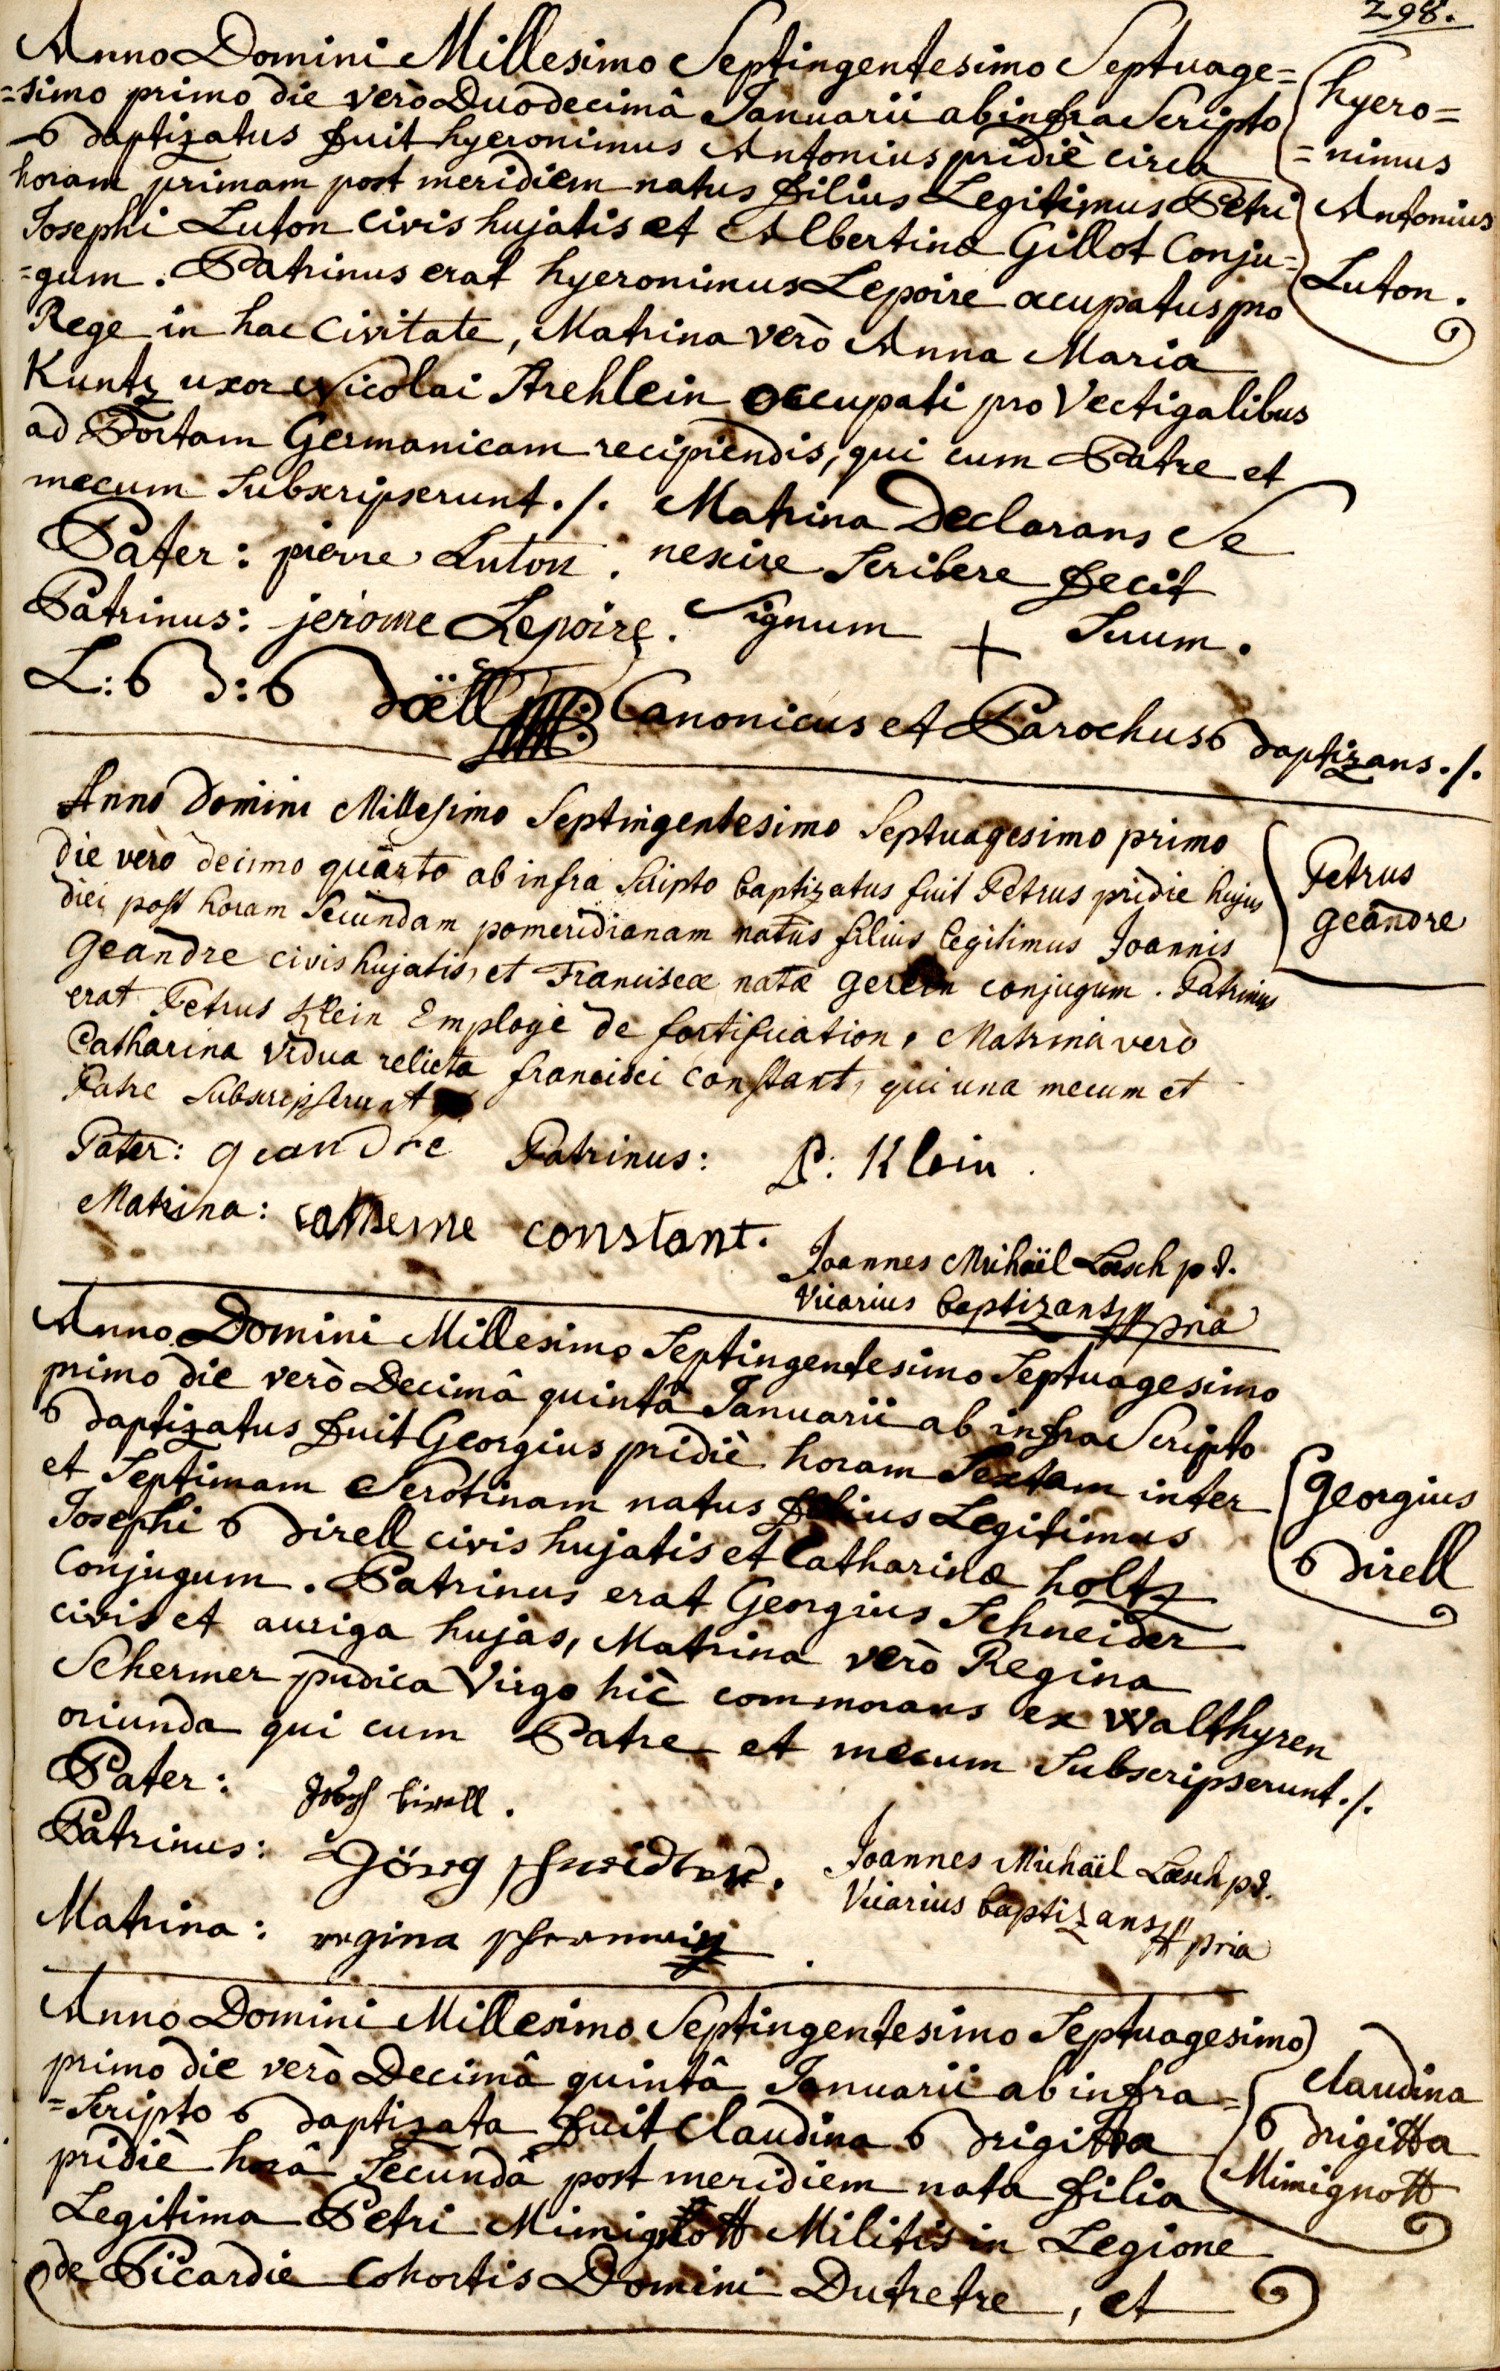 298.
Anno Domini Millesimo Septingentesimo Septuage=
=simo primo die verò Duodecimâ Januarii ab infra Scripto
Baptizatus fuit hyeronimus Antonius pridiè circa
horam primam post meridiem natus filius Legitimus Petri
Josephi Luton civis hujatis et Albertinæ Gillot Conju=
=gum. Patrinus erat hyeronimus Lepoire occupatus pro
Rege in hac Civitate, Matrina verò Anna Maria
Kuntz uxor Nicolai Strehlein occupati pro Vectigalibus
ad Portam Germanicam recipiendis, qui cum Patre et
mecum Subscripserunt ./. Matrina Declarans Se
Pater: pierre Luton. nescire Scribere fecit
Patrinus: jerome Lepoire. Signum + Suum.
L: B: Böell Canonicus et Parochus Baptizans ./.
hyero=
=nimus
Antonius
Luton.
Anno Domini Millesimo Septingentesimo Septuagesimo primo
die verò decimo quarto ab infra Scripto baptizatus fuit Petrus pridie hujus
diei post horam Secundam pomeridianam natus filius legitimus Joannis
Geandre civis hujatis, et Franciscæ natæ conjugum. Patrinus
erat Petrus Klein Employé de fortification, Matrina verò
Catharina vidua relicta francisci Constant, qui una mecum et
Patre Subscripserunt
Pater: geandre Patrinus: P: Klein.
Matrina: catherine constant.
Joannes Michaël Loesch p.t.
Vicarius baptizans mpria
Petrus
geandre
Anno Domini Millesimo Septingentesimo Septuagesimo
primo die verò Decimâ quintâ Januarii ab infra Scripto
Baptizatus fuit Georgius pridiè horam Sextam inter
et Septimam Serotinam natus filius Legitimus
Josephi Birell civis hujatis et Catharinæ holtz
Conjugum. Patrinus erat Georgius Schneider
civis et auriga hujas, Matrina verò Regina
Schermer pudica Virgo hic commorans ex Walthyren
oriunda qui cum Patre et mecum Subscripserunt ./.
Pater: Joseph birell.
Patrinus: Jörg schneider.
Matrina: regina
Joannes Michaël Loesch p.t.
Vicarius baptizans mpria
Georgius
Birell
Anno Domini Millesimo Septingentesimo Septuagesimo
primo die verò Decimâ quintâ Januarii ab infra=
=Scripto Baptizata fuit Claudina Brigitta
pridiè horâ Secundâ post meridiem nata filia
Legitima Petri Mimignott Militis in Legione
de Picardie Cohortis Domini Dutretre, et
Claudina
Brigitta
Mimignott